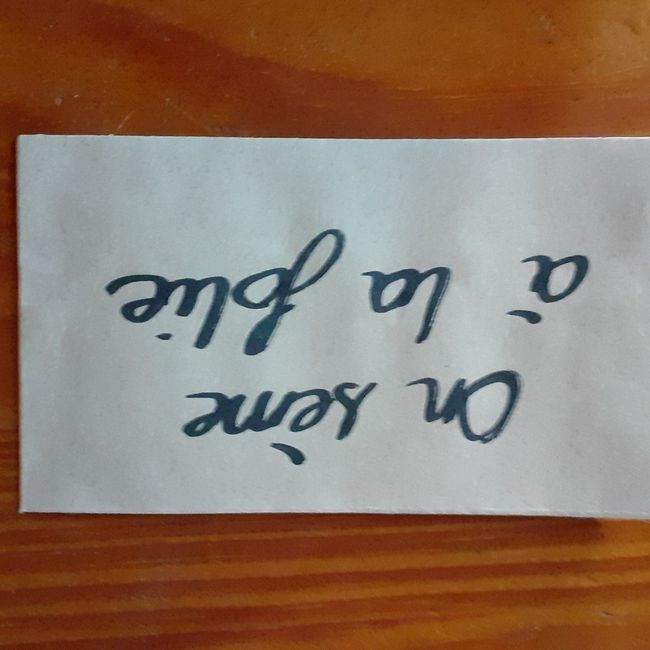 On sème
à la folie